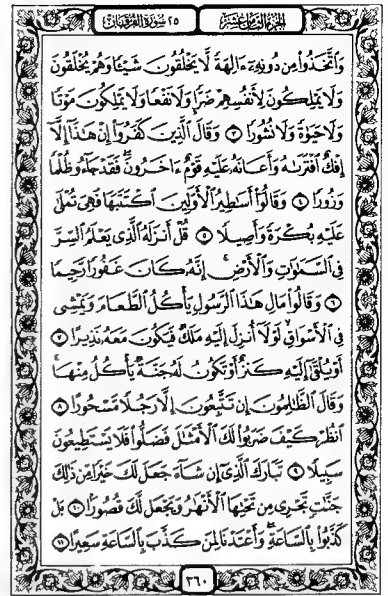 الجزء الثامن عشر
٢٥ سورة الفرقان
وَاتَّخَذُوا مِن دُونِهِ ءَالِهَةً لَّا يَخْلُقُونَ شَيْئًا وَهُمْ يُخْلَقُونَ
وَلَا يَمْلِكُونَ لِأَنفُسِهِمْ ضَرًّا وَلَا نَفْعًا وَلَا يَمْلِكُونَ مَوْتًا
وَلَا حَيَوٰةً وَلَا نُشُورًا ٣ وَقَالَ الَّذِينَ كَفَرُوا إِنْ هَٰذَا إِلَّا
إِفْكٌ افْتَرَىٰهُ وَأَعَانَهُ عَلَيْهِ قَوْمٌ ءَاخَرُونَ فَقَدْ جَاءُو ظُلْمًا
وَزُورًا ٤ وَقَالُوا أَسَٰطِيرُ الْأَوَّلِينَ اكْتَتَبَهَا فَهِيَ تُمْلَىٰ
عَلَيْهِ بُكْرَةً وَأَصِيلًا ٥ قُلْ أَنزَلَهُ الَّذِي يَعْلَمُ السِّرَّ
فِي السَّمَٰوَٰتِ وَالْأَرْضِ إِنَّهُ كَانَ غَفُورًا رَّحِيمًا
٦ وَقَالُوا مَالِ هَٰذَا الرَّسُولِ يَأْكُلُ الطَّعَامَ وَيَمْشِي
فِي الْأَسْوَاقِ لَوْلَا أُنزِلَ إِلَيْهِ مَلَكٌ فَيَكُونَ مَعَهُ نَذِيرًا ٧
أَوْ يُلْقَىٰ إِلَيْهِ كَنزٌ أَوْ تَكُونُ لَهُ جَنَّةٌ يَأْكُلُ مِنْهَا
وَقَالَ الظَّٰلِمُونَ إِن تَتَّبِعُونَ إِلَّا رَجُلًا مَّسْحُورًا ٨
انظُرْ كَيْفَ ضَرَبُوا لَكَ الْأَمْثَٰلَ فَضَلُّوا فَلَا يَسْتَطِيعُونَ
سَبِيلًا ٩ تَبَارَكَ الَّذِي إِن شَاءَ جَعَلَ لَكَ خَيْرًا مِّن ذَٰلِكَ
جَنَّٰتٍ تَجْرِي مِن تَحْتِهَا الْأَنْهَٰرُ وَيَجْعَل لَّكَ قُصُورًا ١٠ بَلْ
كَذَّبُوا بِالسَّاعَةِ وَأَعْتَدْنَا لِمَن كَذَّبَ بِالسَّاعَةِ سَعِيرًا ١١
٣٦٠